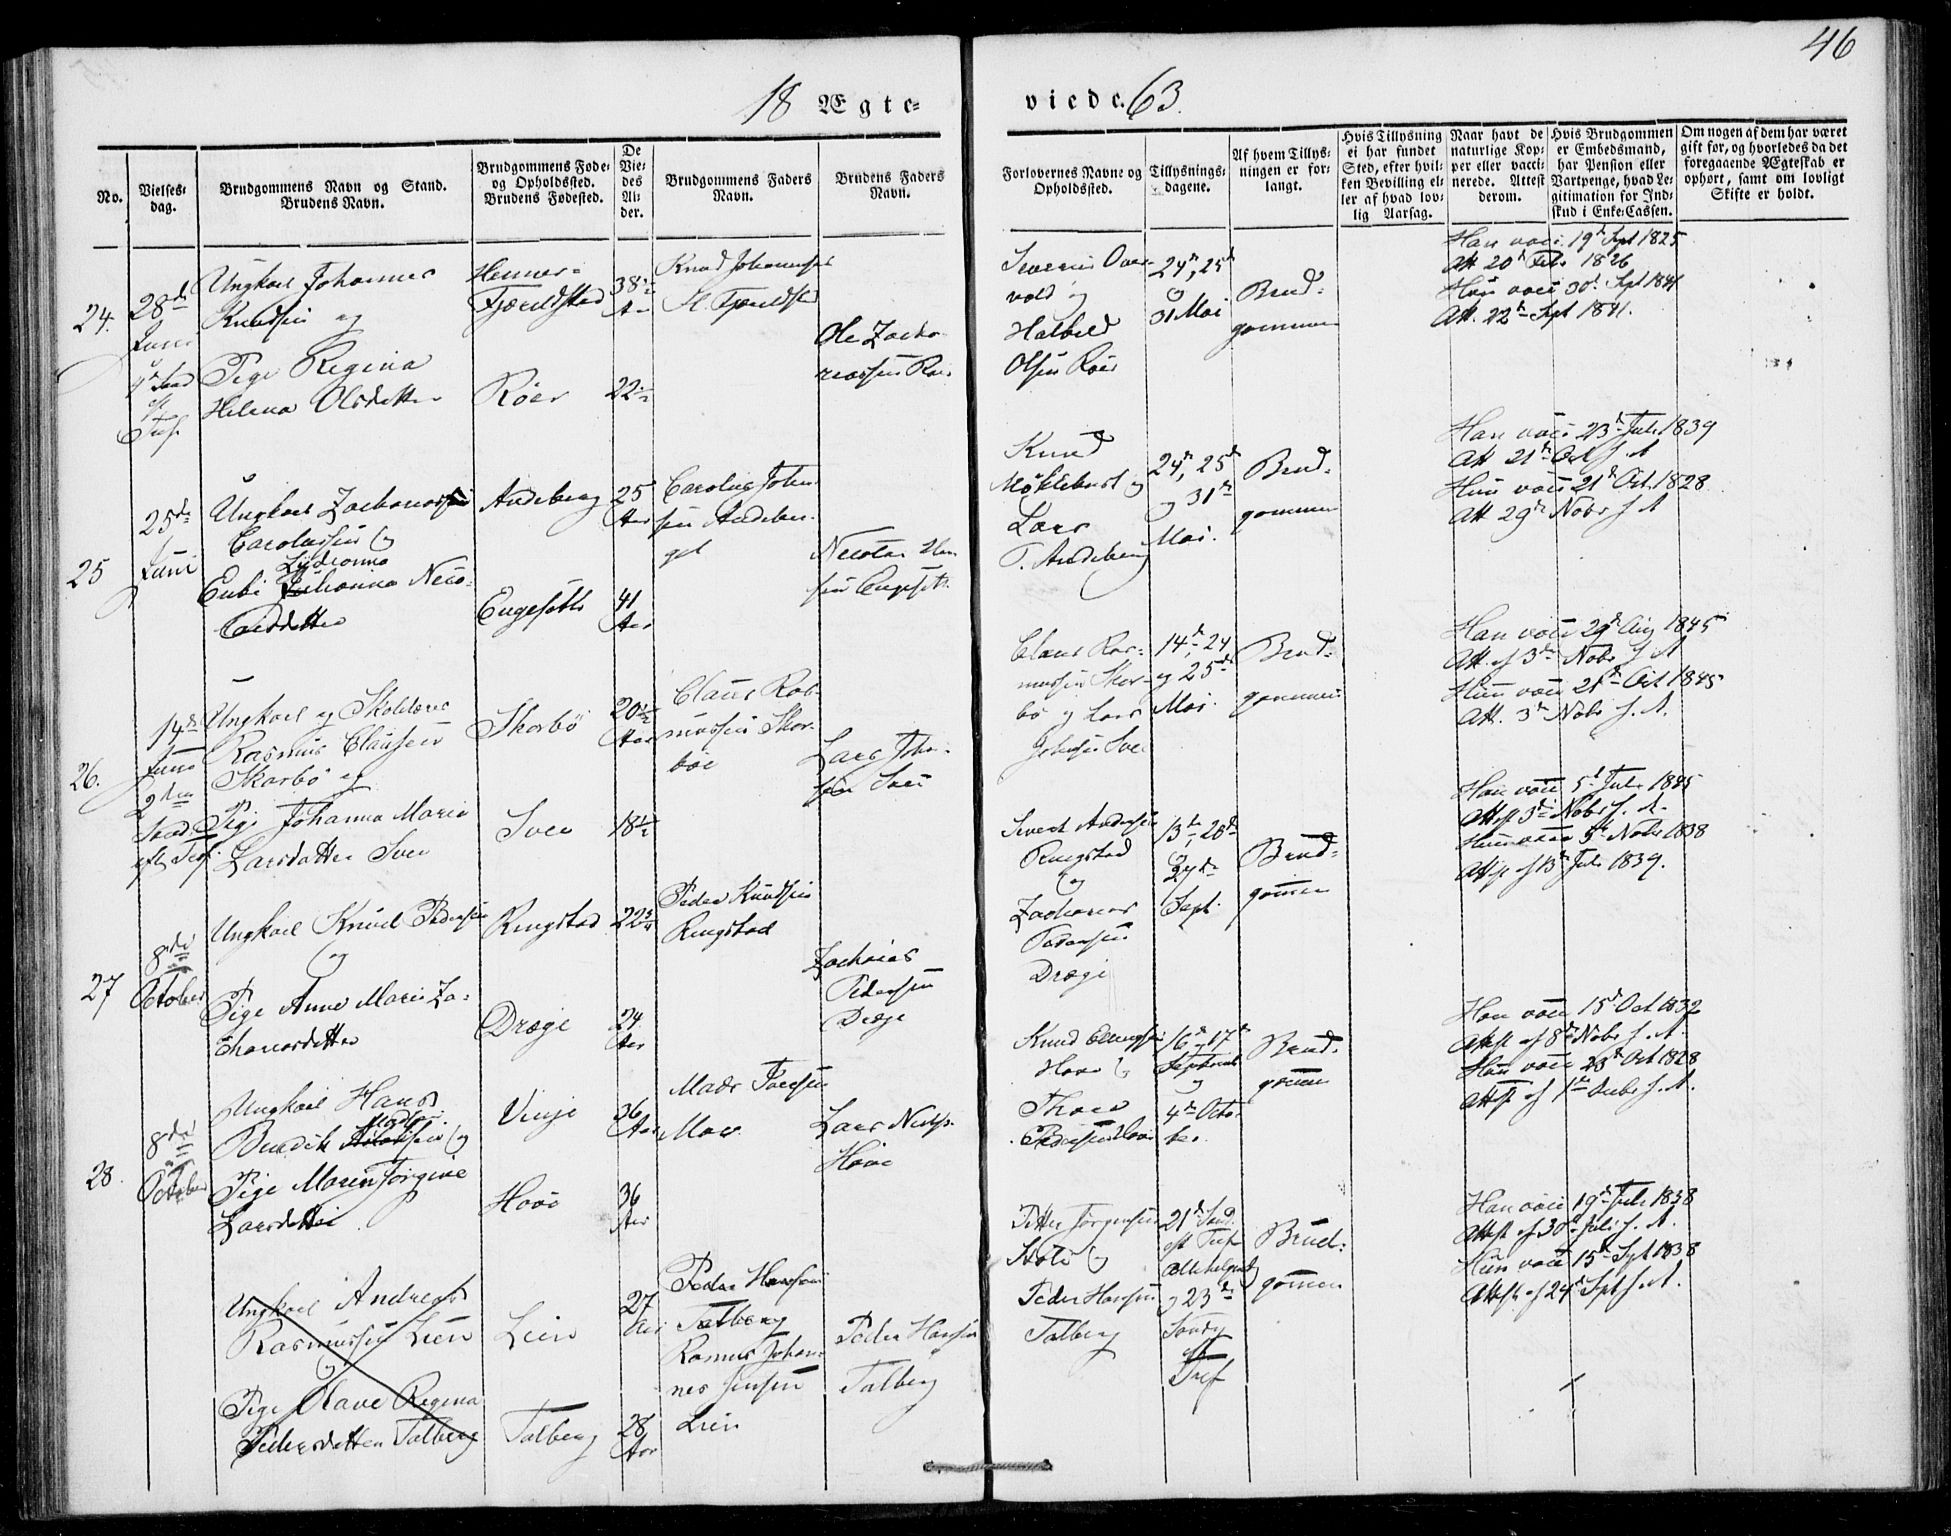 46
18 Ægte-
viede. 63.
No.
Vielses-
dag.
Brudgommens Navn og Stand.
Brudens Navn.
Brudgommens Føde-
og Opholdssted.
Brudens Fødested.
De
Vie-
des
Al-
der.
Brudgommens Faders
Navn.
Brudens Faders
Navn.
Forlovernes Navne og
Opholdssted.
Tillysnings-
dagene.
Af hvem Tillys-
ningen er for-
langt.
Hvis Tillysning
ei har fundet
Sted, efter hvil-
ken Bevilling el-
ler af hvad lov-
lig Aarsag.
Naar havt de
naturlige Kop-
per eller vacci-
nerede. Attest
derom.
Hvis Brudgommen
er Embedsmand,
har Pension eller
Vartpenge, hvad Le-
gitimation for Ind-
skud i Enke-Cassen.
Om nogen af dem har været
gift før, og hvorledes da det
foregaaende Ægteskab er
ophørt, samt om lovligt
Skifte er holdt.
24.
28de
Juni
Ungkarl Johannes
Knudsen og
Pige Regina
Helena Olsdatter
Fjæreldstad
Røer
38½
22½
Knud Johannesen
Ole Zacha-
riassen Roe
Severin Over-
vold og
Olsen Røer
24d, 25d
og
31 Mai
Brud-
gommen
Han vacc. 19d Sept 1825
Att 20d Febr 1826
Att. 22d Sept 1841.
25
25de
Juni
Ungkarl Zachariassen
Carolussen og
Lydianna
Enke Johanna Nico-
Andeberg
Engesætt
25
Aar
41
Aar
Carolus Johan
Nicolai Han
sen Engeset
Knud
Møklebust og
Lars
T. Andeberg
24d, 25d
og 31d
Mai.
Brud-
gommen
Han vacc 23d Juli 1839
Att 21d Oct s. A
Hun vacc 21d Oct. 1828
Att 29d Nobr s. A
26.
14de
Juni
2den
Ungkarl og Skolelærer
Rasmus Clausen
Skorbø og
Pige Johanna Marie
Larsdatter Sver
Skorbø
Sver
20½
Aar
18½
Claus Ras-
mussen Skor-
bøe
Lars John-
sen Sver
Claus Ras-
mussen Skor-
bø og Lars
Johnsen Sver
14d, 24
og 25d
Mai.
Brud-
gommen
Han vacc 29d Aug 1845
Att. af 3d Nobr s. A
Hun vacc 21d Oct 1845
Att. 3d Nobr s. A.
27
8de
October
Ungkarl Knud Pedersen
og
Pige Anne Marie Za-
chariasdatter
Ringstad
Drægi
22¾
24
Aar
Peder Knudsen
Ringstad
Zacharias
Pedersen
Drægi
Sivert Andersen
Ringstad
og
Zacharias
Pedersen
Drægi
13de, 20de
og
27de
Sept.
Brud-
gommen
Han vacc 5d Juli 1845
Attest 3d Nobr s. A.
Hun vacc 5d Nobr 1838
Attest af 13d Juli 1839.
28.
8de
October
Ungkarl Hans
Mads
Bendik
Pige Maren Jørgine
Larsdatter
Vinje
Hove
36
Aar
36
Aar
Mads
Lars Niels
Hove
Knud
Hove og
Thore
Pedersen Hove
16d, 17d
September
og
4de Octo-
ber.
Brud-
gommen
Han vacc 15d Oct 1832
Attest af 8d Nobr s. A.
Hun vacc 23d Oct 1828
Attest af 1ste Debr s. A.
Ungkarl Andreas
Rasmussen Lien
og
Pige Olave Regina
Pedersdatter Talberg
Lien
Talberg
27
Aar
28
Aar
Peder Hansen
Talberg
Rasmus Johan-
nes Jensen
Lien
Peder Hansen
Talberg
Petter Jørgensen
Stole og
Peder Hansen
Talberg
21d Sønd.
eft Tref
Allehelgensd
og 23de
Søndg
eft
Tref
Brud-
gommen
Han vacc 19d Juli 1838
Attest af 30d Juli s. A.
Hun vacc 15d Sept 1838
Attest af 24d Sept s. A.